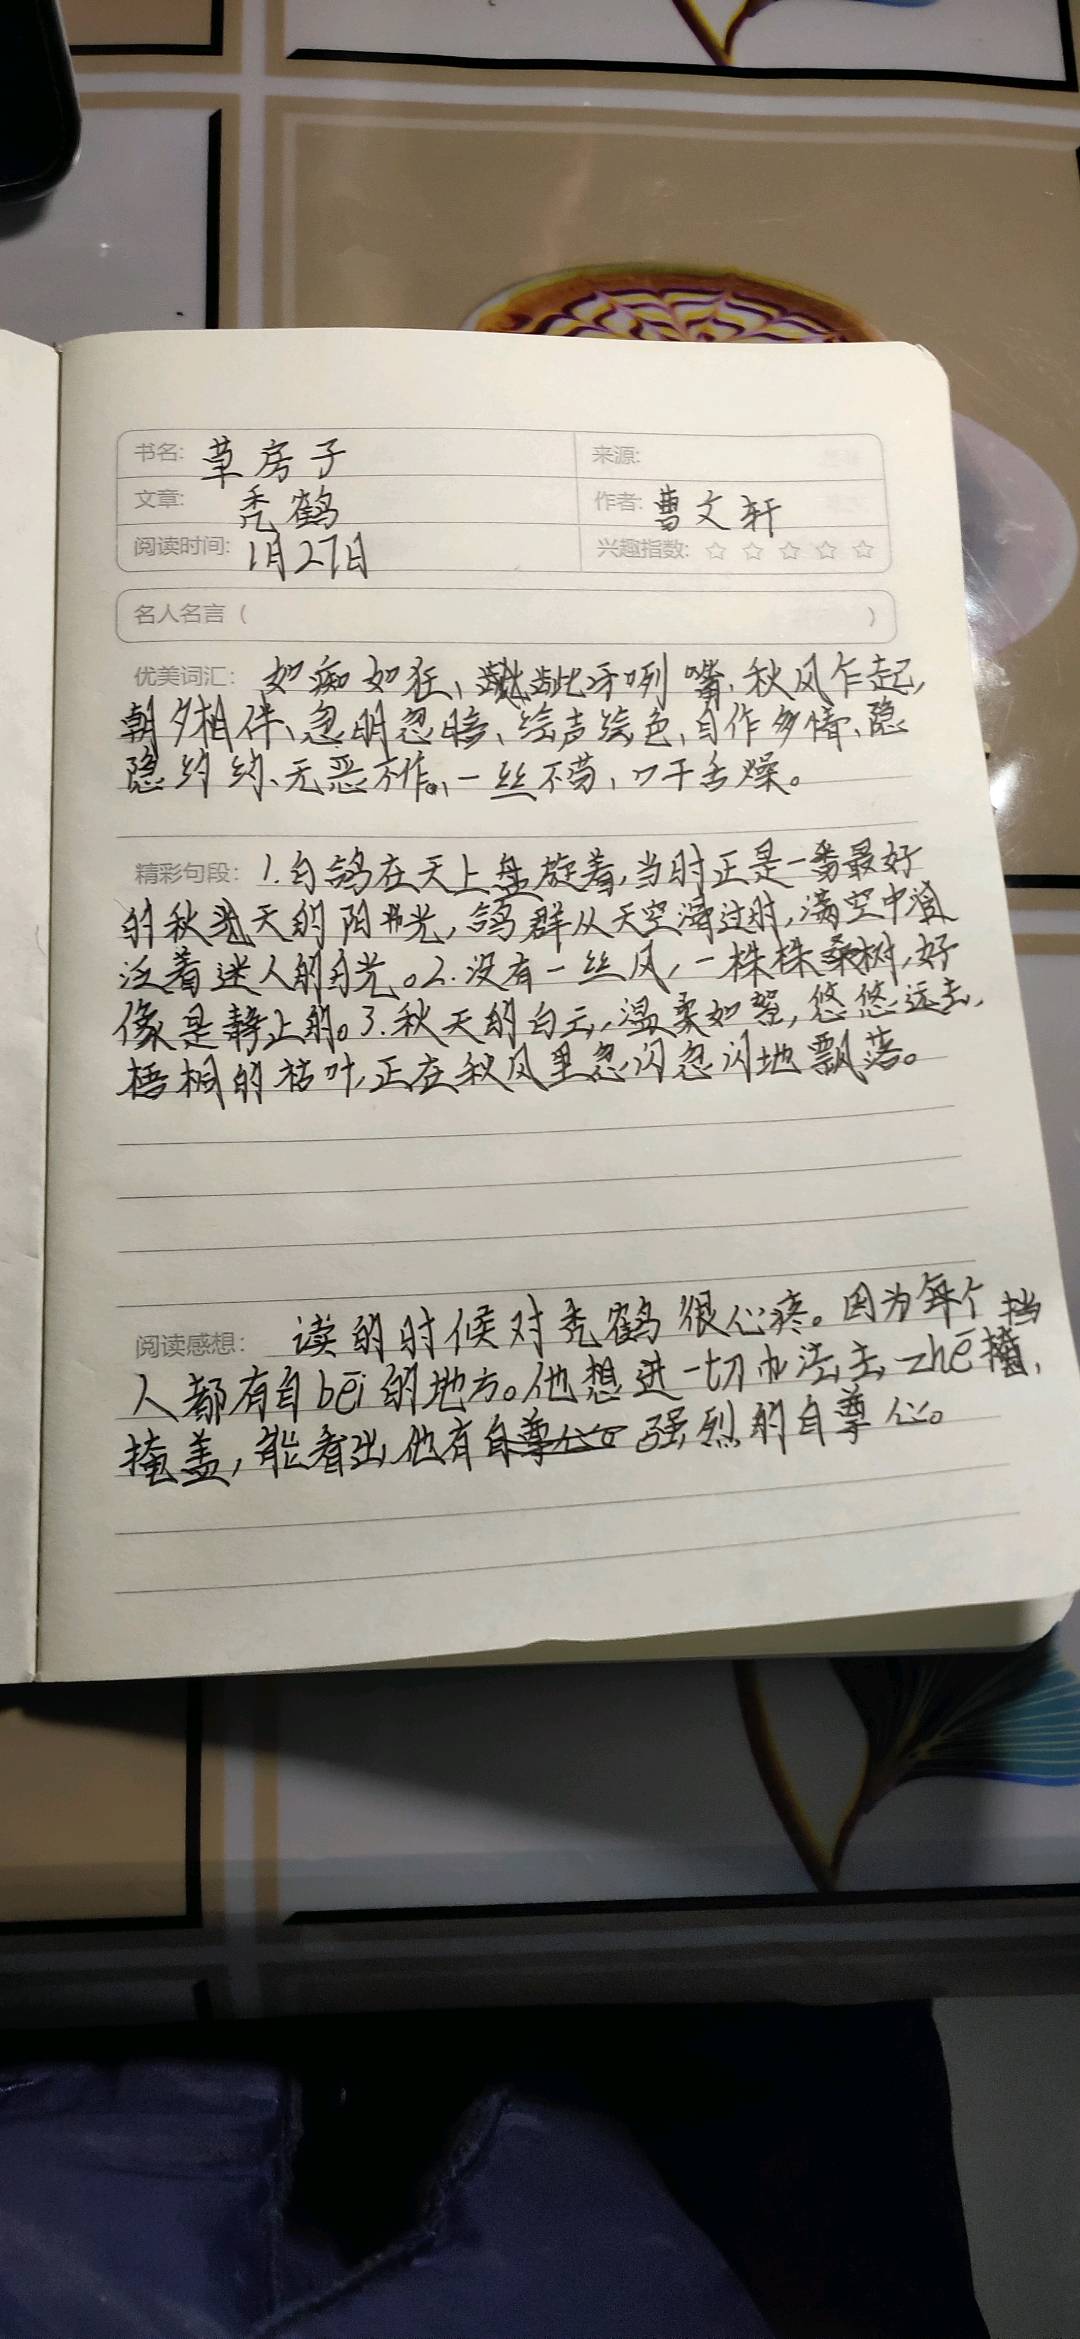 书名: 草房子 来源:
文章: 秃鹤 作者: 曹文轩
阅读时间: 1月27日 兴趣指数: ☆ ☆ ☆ ☆ ☆
名人名言 ( )
优美词汇: 如痴如狂、龇牙咧嘴、秋风乍起,
朝夕相伴、忽明忽暗、绘声绘色、自作多情、隐
隐约约、无恶不作、一丝不苟、口干舌燥。
精彩句段: 1.白鸽在天上盘旋着,当时正是一番最好
的秋天的阳光,鸽群从天空滑过时,满空中
泛着迷人的白光。2.没有一丝风,一株株桑树,好
像是静止的。3.秋天的白云,温柔如絮,悠悠远去,
梧桐的枯叶,正在秋风里忽闪忽闪地飘落。
阅读感想: 读的时候对秃鹤很心疼。因为每个
挡
人都有自bēi的地方。他想进一切办法去zhē掩,
掩盖,能看出他有自尊心强烈的自尊心。